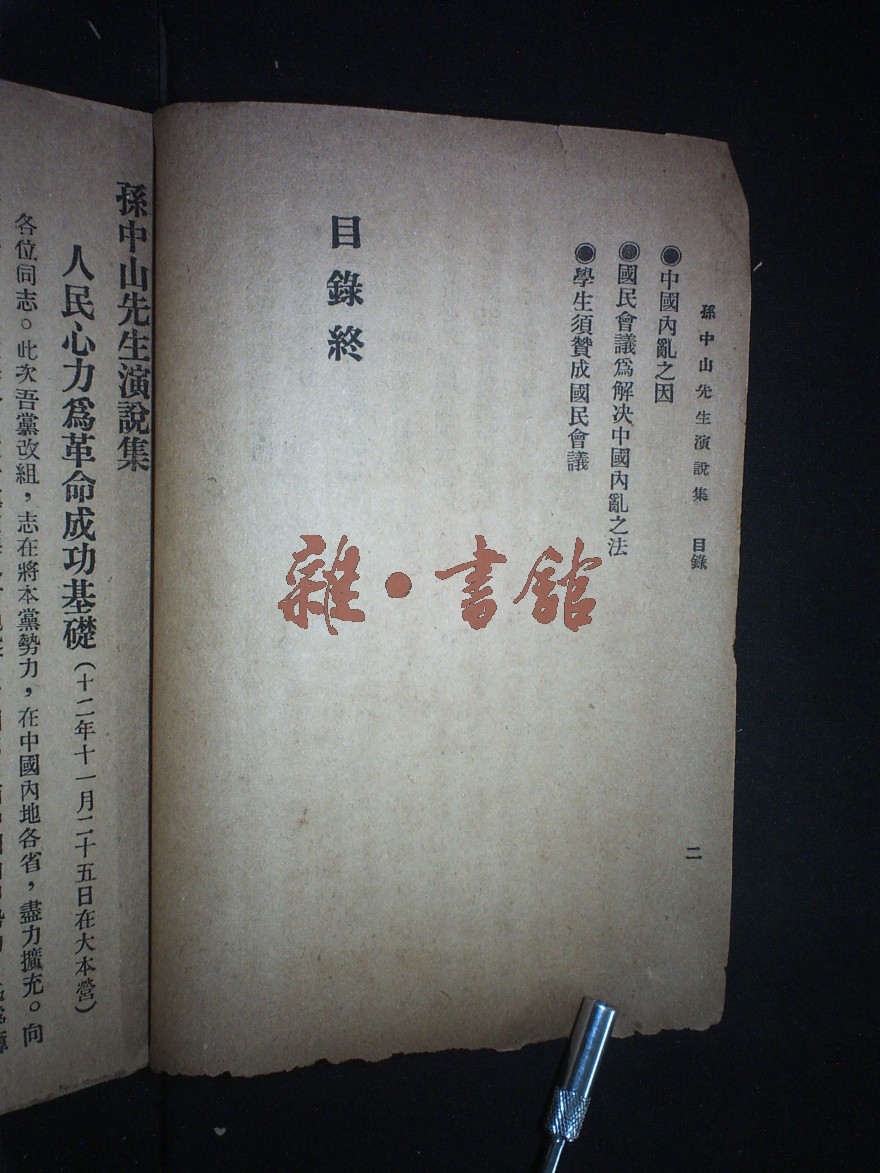 孫中山先生演說集 目錄
二
●中國內亂之因
●國民會議爲解决中國內亂之法
●學生須贊成國民會議
目錄終
雜·書舘
孫中山先生演說集
人民心力爲革命成功基礎(十二年十一月二十五日在大本營)
各位同志。此次吾黨改組,志在將本黨勢力,在中國內地各省,盡力擴充。向